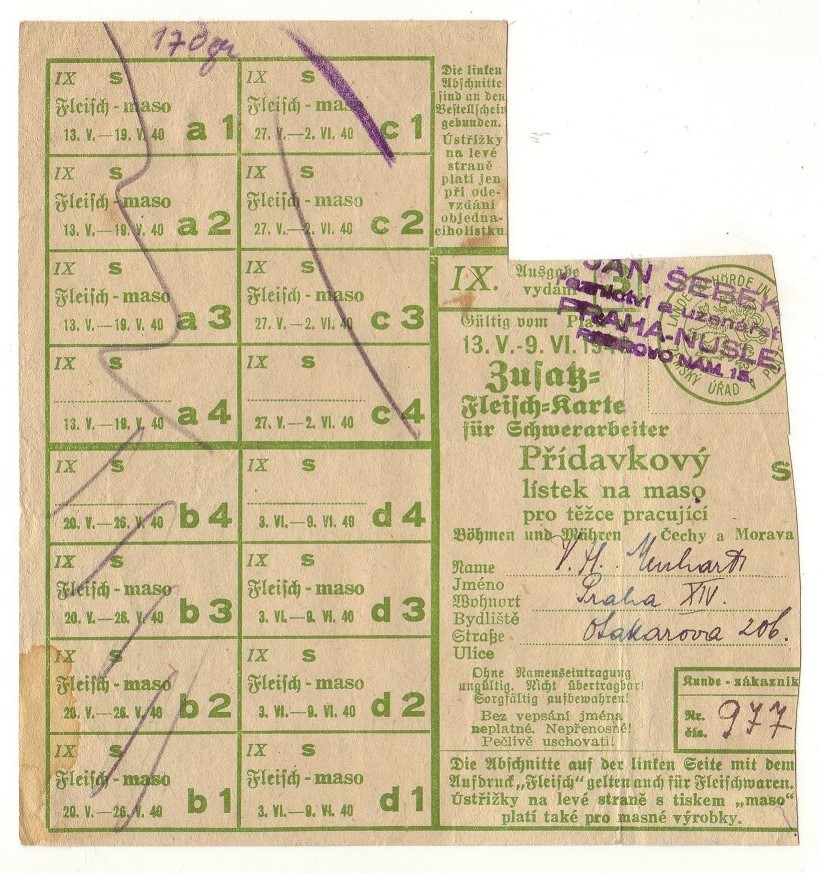 170 gr
IX S
Fleisch - maso
13. V.—19. V. 40 a 1
IX S
Fleisch - maso
27. V.—2. VI. 40 c 1
IX S
Fleisch - maso
13. V.—19. V. 40 a 2
IX S
Fleisch - maso
27. V.—2. VI. 40 c 2
IX S
Fleisch - maso
13. V.—19. V. 40 a 3
IX S
Fleisch - maso
27. V.—2. VI. 40 c 3
IX S
13. V.—19. V. 40 a 4
IX S
27. V.—2. VI. 40 c 4
IX S
20. V.—26. V. 40 b 4
IX S
3. VI.—9. VI. 40 d 4
IX S
Fleisch - maso
20. V.—26. V. 40 b 3
IX S
Fleisch - maso
3. VI.—9. VI. 40 d 3
IX S
Fleisch - maso
20. V.—26. V. 40 b 2
IX S
Fleisch - maso
3. VI.—9. VI. 40 d 2
IX S
Fleisch - maso
20. V.—26. V. 40 b 1
IX S
Fleisch - maso
3. VI.—9. VI. 40 d 1
Die linken
Abschnitte
sind an den
Bestellschein
gebunden.
Ústřižky
na levé
straně
platí jen
při ode-
vzdání
objedna-
cího lístku
IX. Ausgabe
vydání
JAN
uzenářst
PRAHA-NUSLE
NÁM. 15.
ÚŘAD
Gültig vom
13. V.-9. VI. 19
Zusatz=
Fleisch=Karte
für Schwerarbeiter
Přídavkový S
lístek na maso
pro těžce pracující
Böhmen und Mähren Čechy a Morava
Name
Jméno
Wohnort Praha XIV.
Bydliště
Straße Otakarova 206.
Ulice
Ohne Namenseintragung
ungültig. Nicht übertragbar!
Sorgfältig aufbewahren!
Bez vepsání jména
neplatné. Nepřenosné!
Pečlivě uschovati!
Kunde - zákazník
Nr.
čís. 977
Die Abschnitte auf der linken Seite mit dem
Aufdruck „Fleisch" gelten auch für Fleischwaren.
Ústřižky na levé straně s tiskem „maso"
platí také pro masné výrobky.